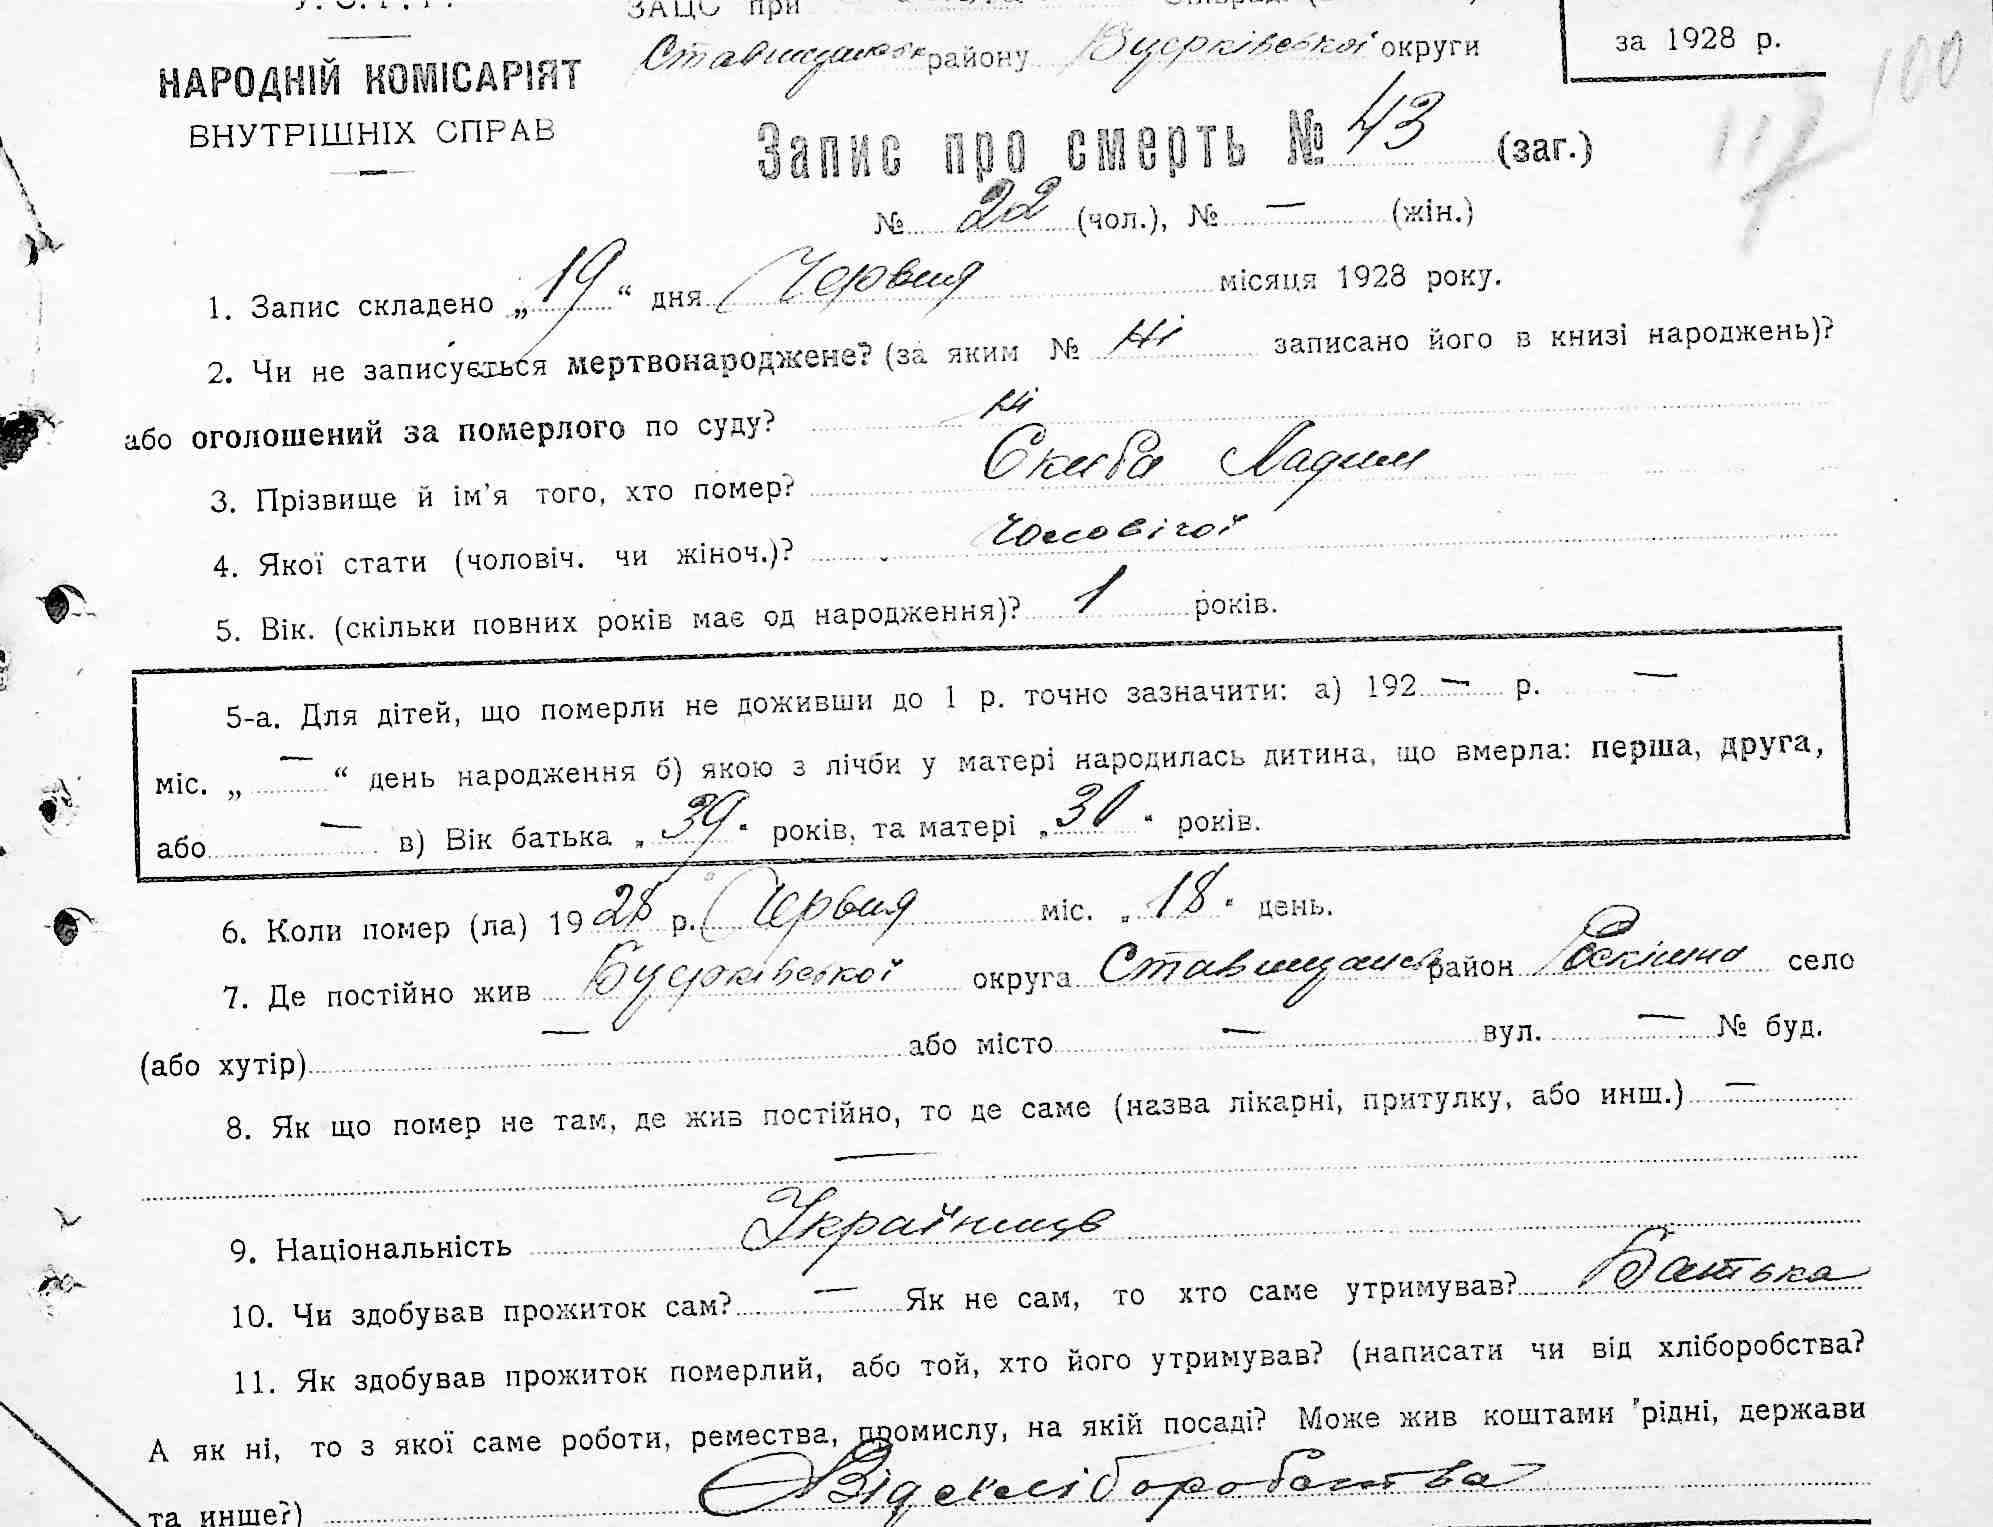 У. С. Р. Р.
ЗАЦС при
НАРОДНІЙ КОМІСАРІЯТ
ВНУТРІШНІХ СПРАВ
району Буцрківської округи
за 1928 р.
100
117
Запис про смерть № 43 (заг.)
№ 22 (чол.), № — (жін.)
1. Запис складено „19“ дня Червня місяця 1928 року.
2. Чи не записується мертвонароджене? (за яким № Ні записано його в книзі народжень)?
або оголошений за померлого по суду? Ні
3. Прізвище й ім’я того, хто помер? Скиба Ладим
4. Якої стати (чоловіч. чи жіноч.)? чоловічої
5. Вік. (скільки повних років має од народження)? 1 років.
5-а. Для дітей, що померли не доживши до 1 р. точно зазначити: а) 192 — р. —
міс. „ — “ день народження б) якою з лічби у матері народилась дитина, що вмерла: перша, друга,
або — в) Вік батька „39“ років, та матері „30“ років.
6. Коли помер (ла) 1928 р. Червня міс. „18“ день.
7. Де постійно жив Буцрківської округа Ставищанськ район село
(або хутір) — або місто — вул. — № буд.
8. Як що помер не там, де жив постійно, то де саме (назва лікарні, притулку, або инш.) —
—
9. Національність Українець
10. Чи здобував прожиток сам? — Як не сам, то хто саме утримував? Батька
11. Як здобував прожиток померлий, або той, хто його утримував? (написати чи від хліборобства?
А як ні, то з якої саме роботи, ремества, промислу, на якій посаді? Може жив коштами рідні, держави
та инше?) Від хліборобства